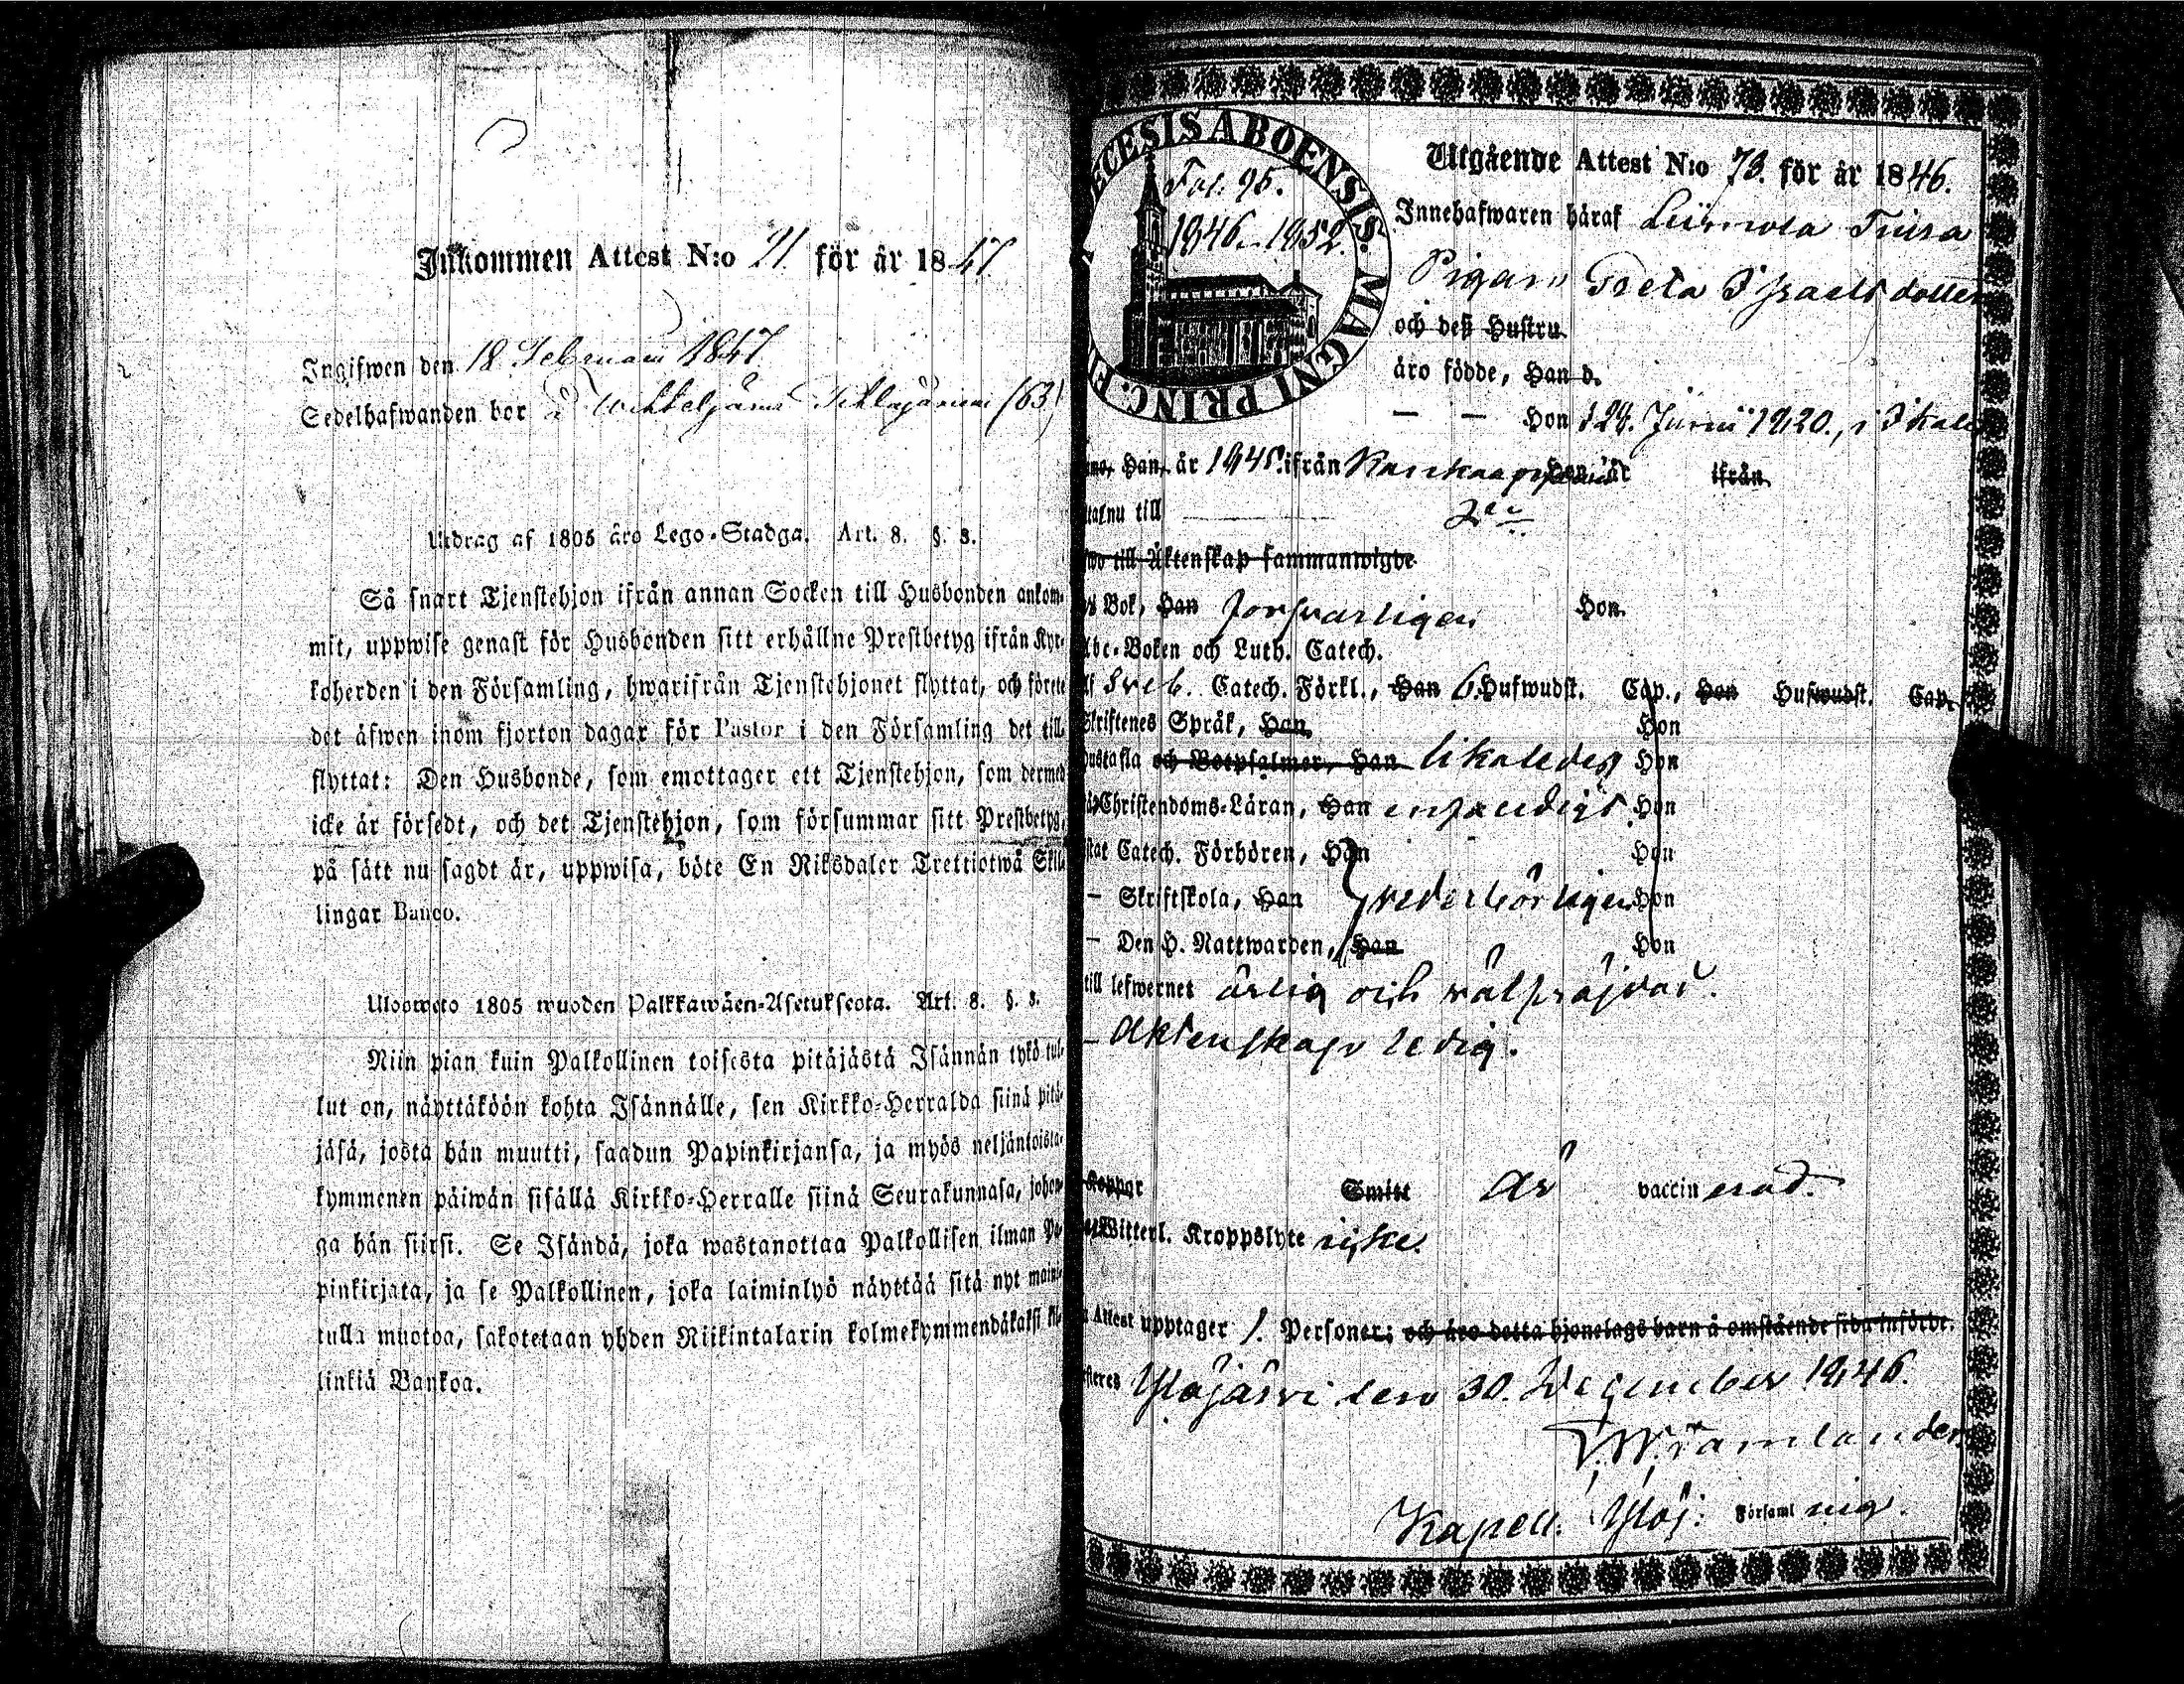 Inkommen Attest N:o 21. för år 1847
Ingifwen den 18 Februarii 1847.
Sedelhafwanden bor å (63)
Utdrag af 1805 års Lego-Stadga. Art. 8. §. 8.
Så snart Tjenstehjon ifrån annan Socken till Husbonden ankom-
mit, uppwise genast för Husbonden sitt erhållne Prestbetyg ifrån Kyr-
koherden i den Församling, hwarifrån Tjenstehjonet flyttat, och förete
det äfwen inom fjorton dagar för Pastor i den Församling det till-
flyttat: Den Husbonde, som emottager ett Tjenstehjon, som dermed
icke är försedt, och det Tjenstehjon, som försummar sitt Prestbetyg,
på sätt nu sagdt är, uppwisa, böte En Riksdaler Trettiotwå Skil-
lingar Banco.
Ulosweto 1805 wuoden Palkkawäen-Asetuksesta. Art. 8. §. 8.
Niin pian kuin Palkollinen toisesta pitäjästä Isännän tykö tul-
lut on, näyttäköön kohta Isännälle, sen Kirkko-Herralda siinä pitä-
jäsä, josta hän muutti, saadun Papinkirjansa, ja myös neljäntoista-
kymmenen päiwän sisällä Kirkko-Herralle siinä Seurakunnasa, johon-
ga hän siirsi. Se Isändä, joka wastanottaa Palkollisen ilman Pa-
pinkirjata, ja se Palkollinen, joka laiminlyö näyttää sitä nyt maini-
tulla muotoa, sakotetaan yhden Riikintalarin kolmekymmendäkaksi kil-
linkiä Bankoa.
ECESIS ABOENSIS. MAGNI PRINC. F
Fol. 95.
1846-1852.
Utgående Attest N:o 73. för år 1846.
Innehafwaren häraf
Pigan Greta Israelsdotter
och deß Hustru
äro födde, Han d.
— — Hon d 24. Junii 1820., i Ikalis
Han, år 1845. ifrån Hon år ifrån
nu till
till Äktenskap sammanwigde
Bok, Han försvarligen Hon.
Abc-Boken och Luth. Catech.
Sveb. Catech. Förkl., Han 6. Hufwudst. Cap., Hon Hufwudst. Cap.
Skriftenes Språk, Han Hon
Hustafla och Botpsalmer, Han likaledes Hon
Christendoms-Läran, Han enfaldigt Hon
Catech. Förhören, Han Hon
— Skriftskola, Han vederbörligen Hon
— Den H. Nattwarden, Han Hon
till lefwernet ärlig och välfräjdad.
— Äktenskap ledig.
Koppor Smitt Är vaccinerad.
Witterl. Kroppslyte ejske.
Attest upptager 1. Personer; och äro detta hjonelags barn å omstående sida införde.
Ylöjärvi den 30. December 1846.
Kapell: Ylöj: Församl ing.